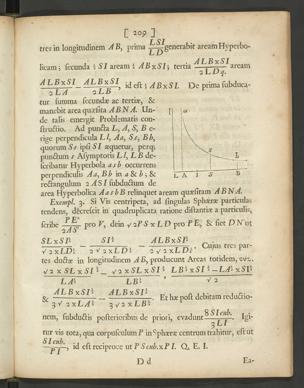 [ 209 ]
tres in longitudinem AB, prima LSI/LD generabit aream Hyperbo-
licam; secunda ½ SI aream ½ AB×SI; tertia ALB×SI/2LDq. aream
ALB×SI/2LA − ALB×SI/2LB, id est ½ AB×SI. De prima subduca-
tur summa secundæ ac tertiæ, &
manebit area quæsita ABNA. Un-
de talis emergit Problematis con-
structio. Ad puncta L, A, S, B e-
rige perpendicula Ll, Aa, Ss, Bb,
quorum Ss ipsi SI æquetur, perq;
punctum s Asymptotis Ll, LB de-
scribatur Hyperbola asb occurrens
perpendiculis Aa, Bb in a & b; &
rectangulum 2ASI subductum de
area Hyperbolica AasbB relinquet aream quæsitam ABNA.
l a s b
L A I S B
Exempl. 3. Si Vis centripeta, ad singulas Sphæræ particulas
tendens, decrescit in quadruplicata ratione distantiæ a particulis,
scribe
pro V, dein √2PS×LD pro PE, & fiet DN ut
Cujus tres par-
tes ductæ in longitudinem AB, producunt Areas totidem,
&
Et hæ post debitam reductio-
nem, subductis posterioribus de priori, evadunt 8SI cub./3LI. Igi-
tur vis tota, qua corpusculum P in Sphæræ centrum trahitur, est ut
SI cub./PI, id est reciproce ut PS cub.×PI. Q. E. I.
D d
Ea-